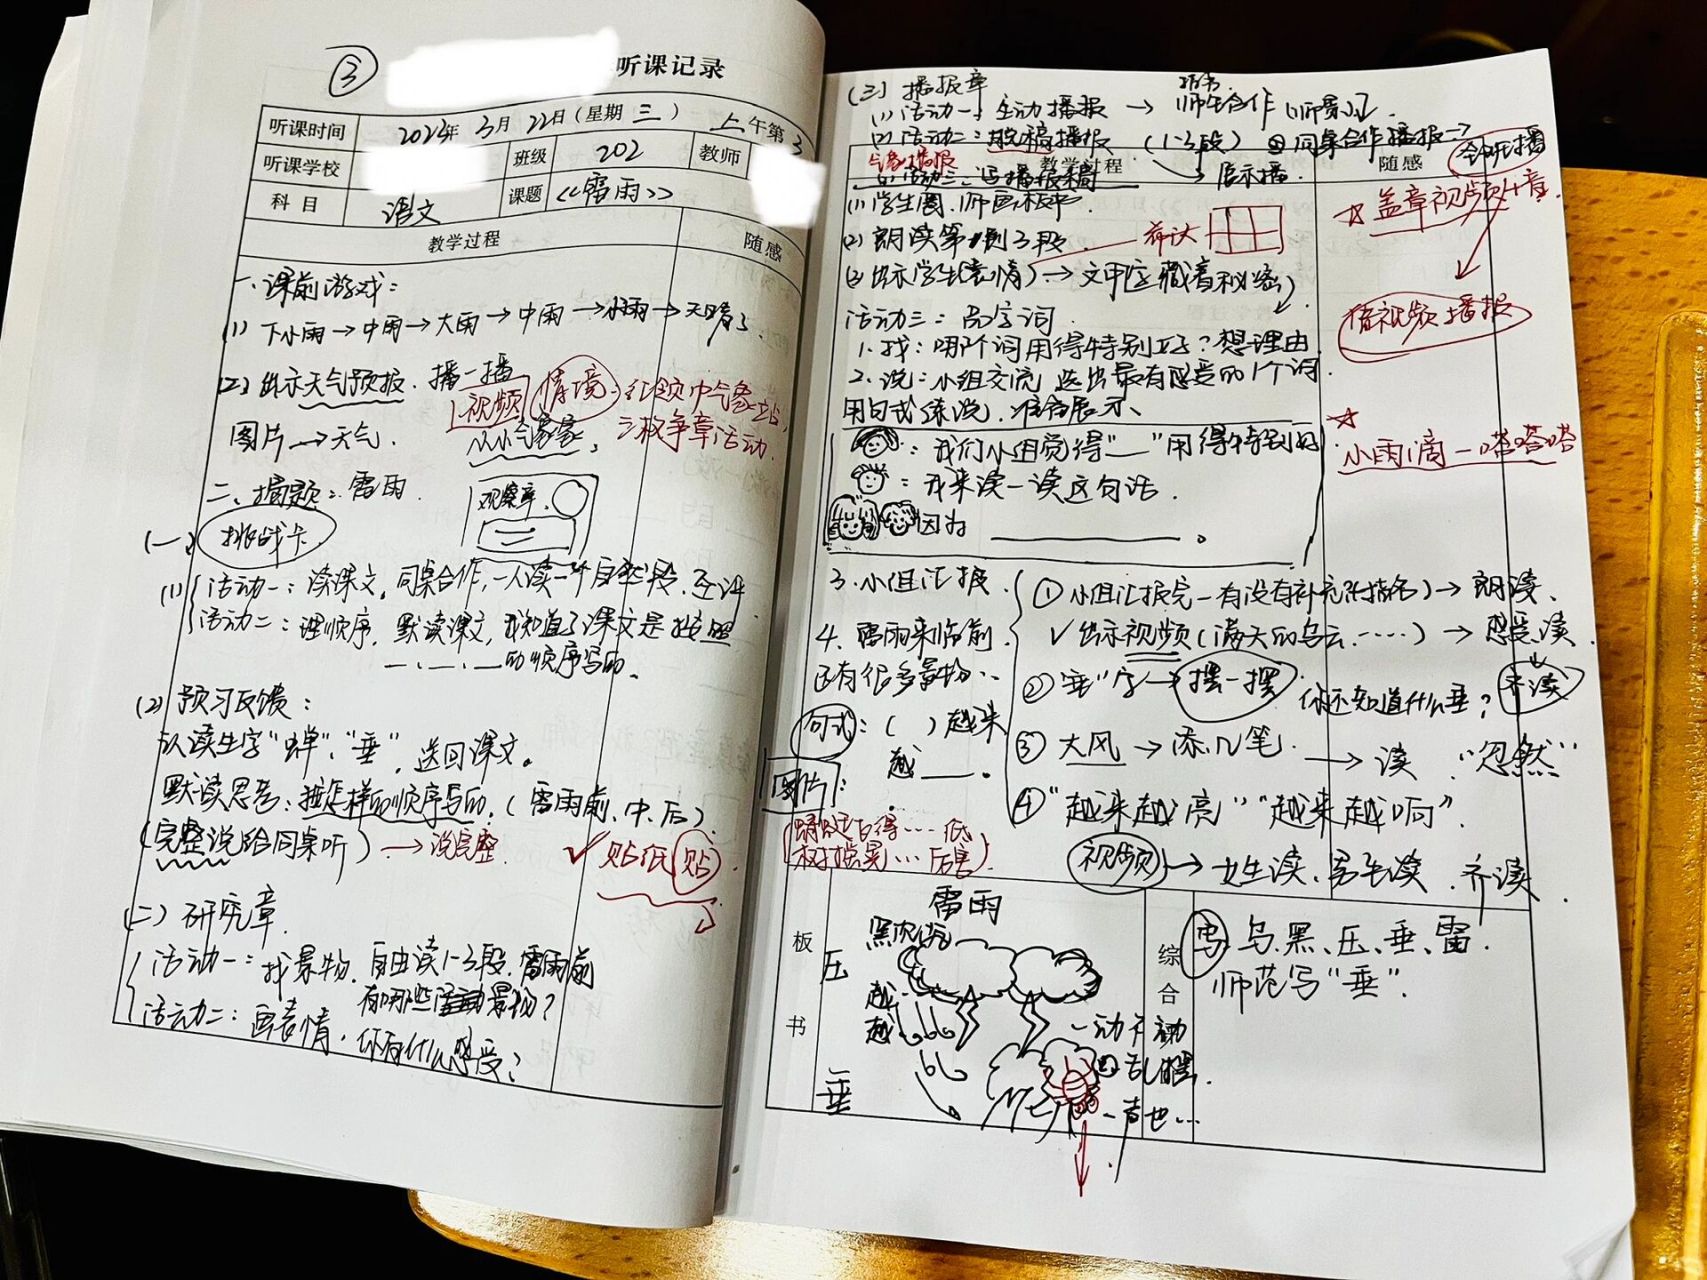 ③
听课记录
听课时间 2023年 3月 22日（星期 三） 上 午第 3
听课学校 班级 202 教师
科目 语文 课题 《雷雨》
教学过程 随感
一、课前游戏：
(1) 下小雨→中雨→大雨→中雨→小雨→天晴了.
(2) 出示天气预报. 播一播
视频 情境：红领巾气象站,
图片→天气. 小小气象家, 三枚争章活动.
二、揭题：雷雨.
观察章
(一) 挑战卡
(1) 活动一：读课文。同桌合作，一人读一个自然段.
活动二：理顺序. 默读课文, 我知道了课文是按照
__、__、__的顺序写的。
(2) 预习反馈：
认读生字“蝉”、“垂”, 送回课文。
默读思考：按怎样的顺序写的.（雷雨前、中、后）
(完整说给同桌听) → 说完整. ✓ 贴纸 贴.
(二) 研究章
活动一：找景物. 自由读1-3段. 雷雨前
有哪些景物？
活动二：画表情. 你有什么感受？
(三) 播报章
(1) 活动一：主动播报 → 师生合作
(2) 活动二：脱稿播报 (1-3段) 同桌合作播报→
气象播报
教学过程 随感
活动三：写播报稿 展示播.
☆ 盖章视频
(1) 学生圈、师画板书.
(2) 朗读第1到3段
(3) 出示学生(表情) → 文中字藏着秘密
借视频播报
活动三：品字词.
1. 找：哪个词用得特别好？想理由.
2. 说：小组交流, 选出最有感受的1个词.
用句式练说. 准备展示、
☆
小雨滴—嗒嗒嗒
：我们小组觉得“__”用得特别好
：我来读一读这句话.
因为__________。
3. 小组汇报.
① 小组汇报完—有没有补充(指名) → 朗读.
✓ 出示视频 (满天的乌云……) → 感受、读.
② “垂”字 → 摆一摆 你还知道什么垂？ 齐读
③ 大风 → 添几笔. → 读. “忽然”
④ “越来越亮” “越来越响”.
视频 → 女生读、男生读、齐读.
4. 雷雨来临前
还有很多景物…
句式：( )越来
越__。
图片：
板书
雷雨
压
越
越
垂
一动不动
乱摆.
综合
写 乌、黑、压、垂、雷.
师范写“垂”.